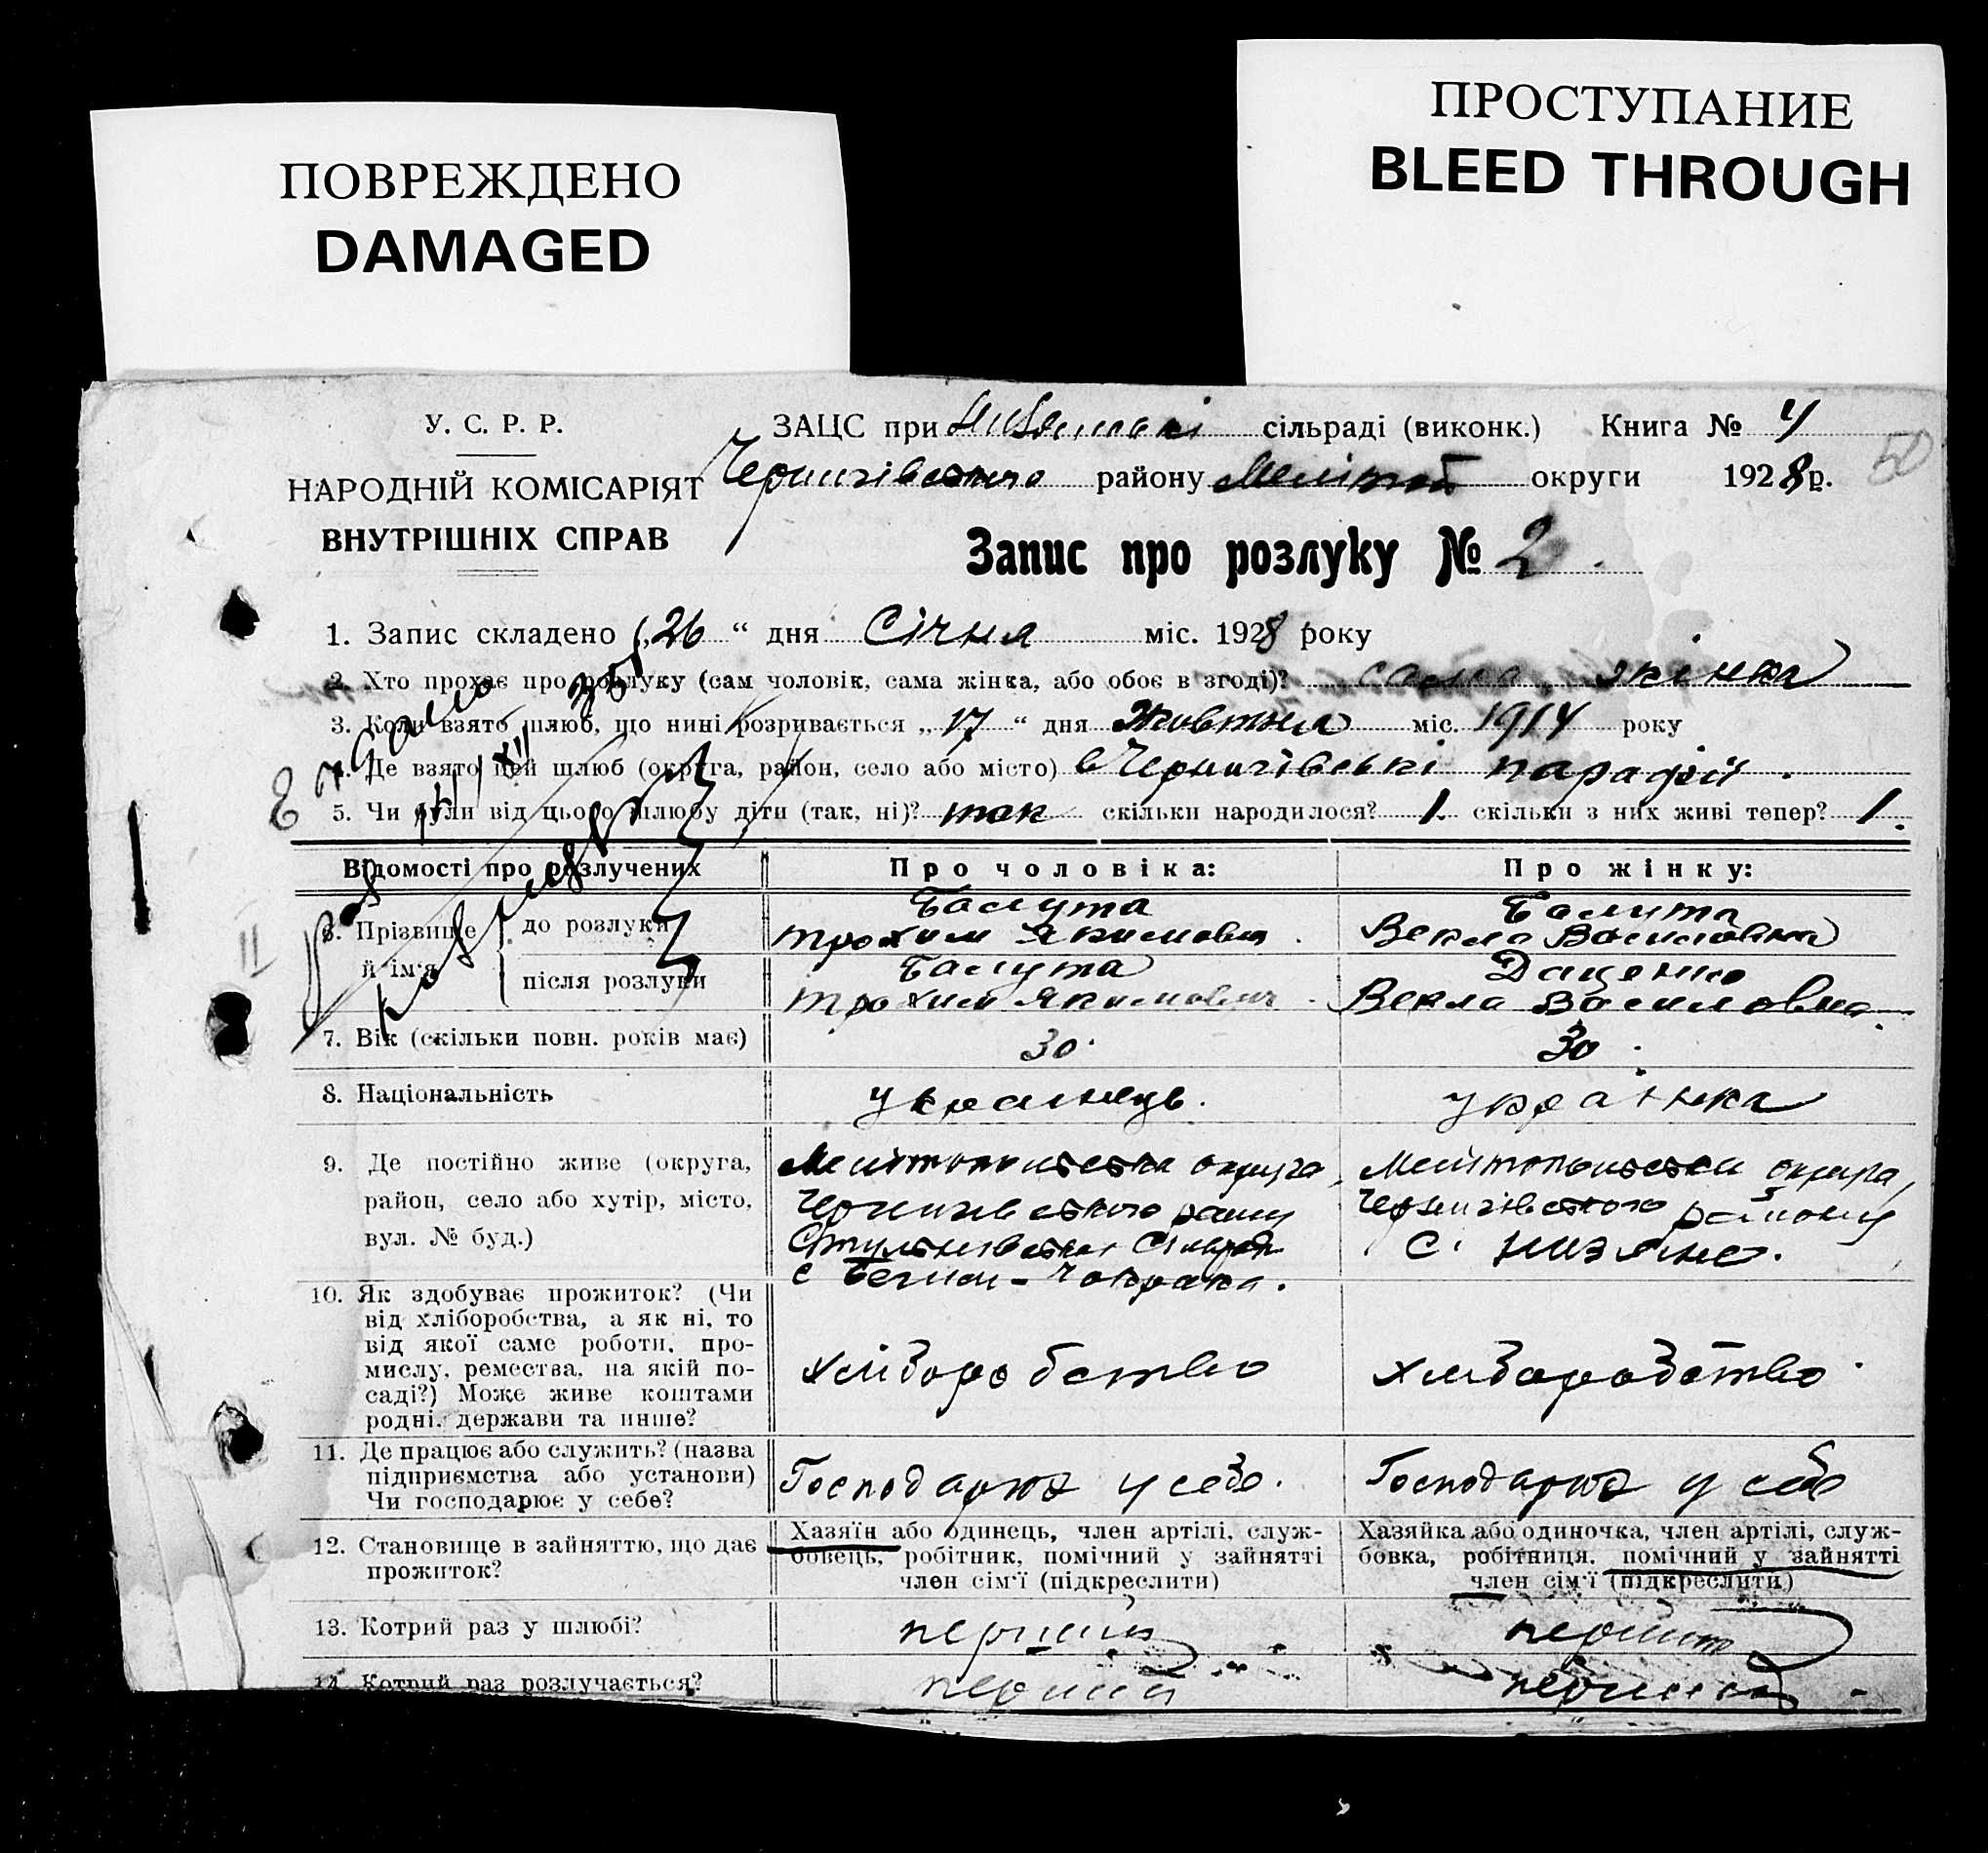 ПОВРЕЖДЕНО
DAMAGED
ПРОСТУПАНИЕ
BLEED THROUGH
У. С. Р. Р.
НАРОДНІЙ КОМІСАРІЯТ
ВНУТРІШНІХ СПРАВ
ЗАЦС при сільраді (виконк.) Книга № 4
50
Чернигівського району Мелітоп округи 1928 р.
Запис про розлуку № 2.
1. Запис складено „26“ дня Січня міс. 1928 року
2. Хто прохає про розлуку (сам чоловік, сама жінка, або обоє в згоді)? сама жінка
3. Коли взято шлюб, що нині розривається „17“ дня Жовтня міс. 1914 року
4. Де взято цей шлюб (округа, район, село або місто) в Чернигівські парафії.
5. Чи були від цього шлюбу діти (так, ні)? так скільки народилося? 1 скільки з них живі тепер? 1.
Відомості про розлучених
Про чоловіка:
Про жінку:
6. Прізвище й ім'я
до розлуки
Трохим Якимович
Векла Василовна
після розлуки
Трохим Якимович
Даценко
Векла Василовна.
7. Вік (скільки повн. років має)
30.
30.
8. Національність
українець.
українка
9. Де постійно живе (округа,
район, село або хутір, місто,
вул. № буд.)
Мелітопольська округа,
Чернигівського району
с
Мелітопольська округа,
Чернигівського району
с. Низяне.
10. Як здобуває прожиток? (Чи
від хліборобства, а як ні, то
від якої саме роботи, про-
мислу, ремества, на якій по-
саді?) Може живе коштами
родні, держави та инше?
хліборобство
хліборобство
11. Де працює або служить? (назва
підприємства або установи)
Чи господарює у себе?
Господарює у себе.
Господарює у себе
12. Становище в зайняттю, що дає
прожиток?
Хазяїн або одинець, член артілі, служ-
бовець, робітник, помічний у зайнятті
член сім'ї (підкреслити)
Хазяйка або одиночка, член артілі, служ-
бовка, робітниця, помічний у зайнятті
член сім'ї (підкреслити)
13. Котрий раз у шлюбі?
перший
перший
14. Котрий раз розлучається?
перший
перший